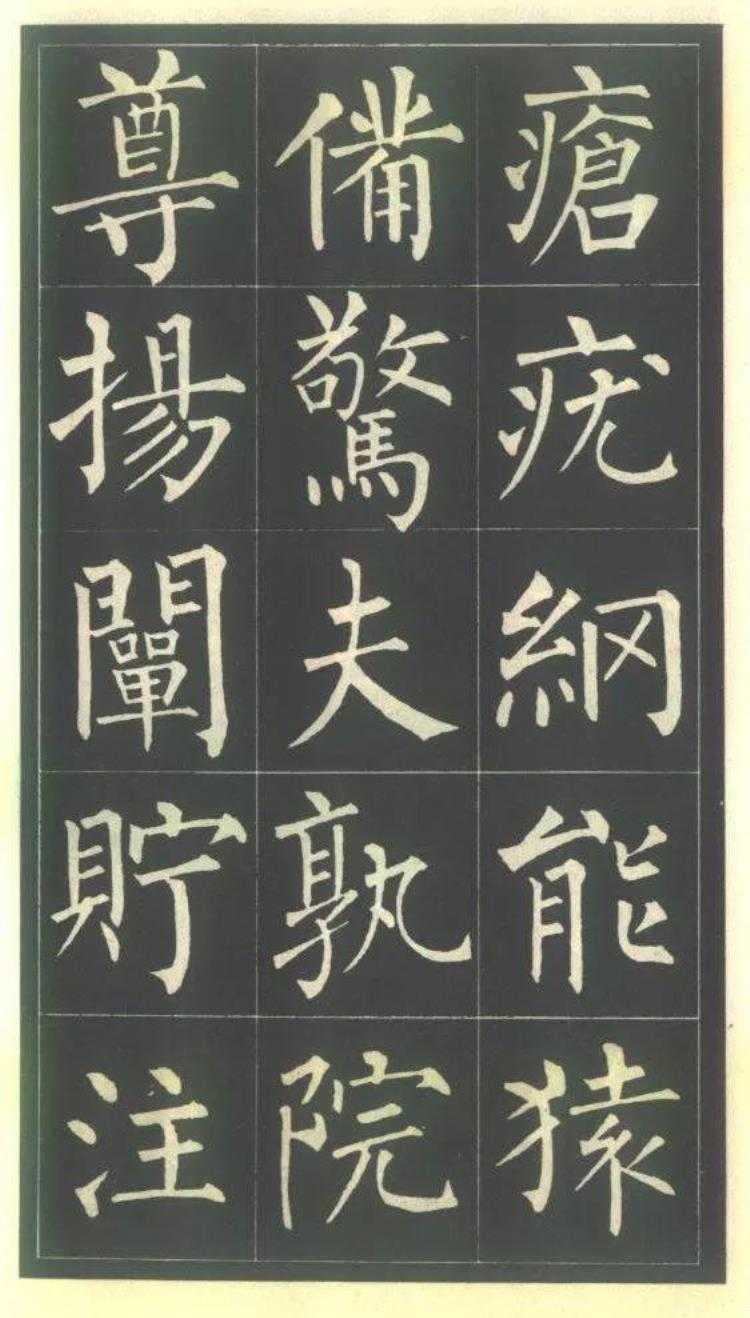 瘡疣䋄能猿
備驚夫孰院
尊揚闡貯注